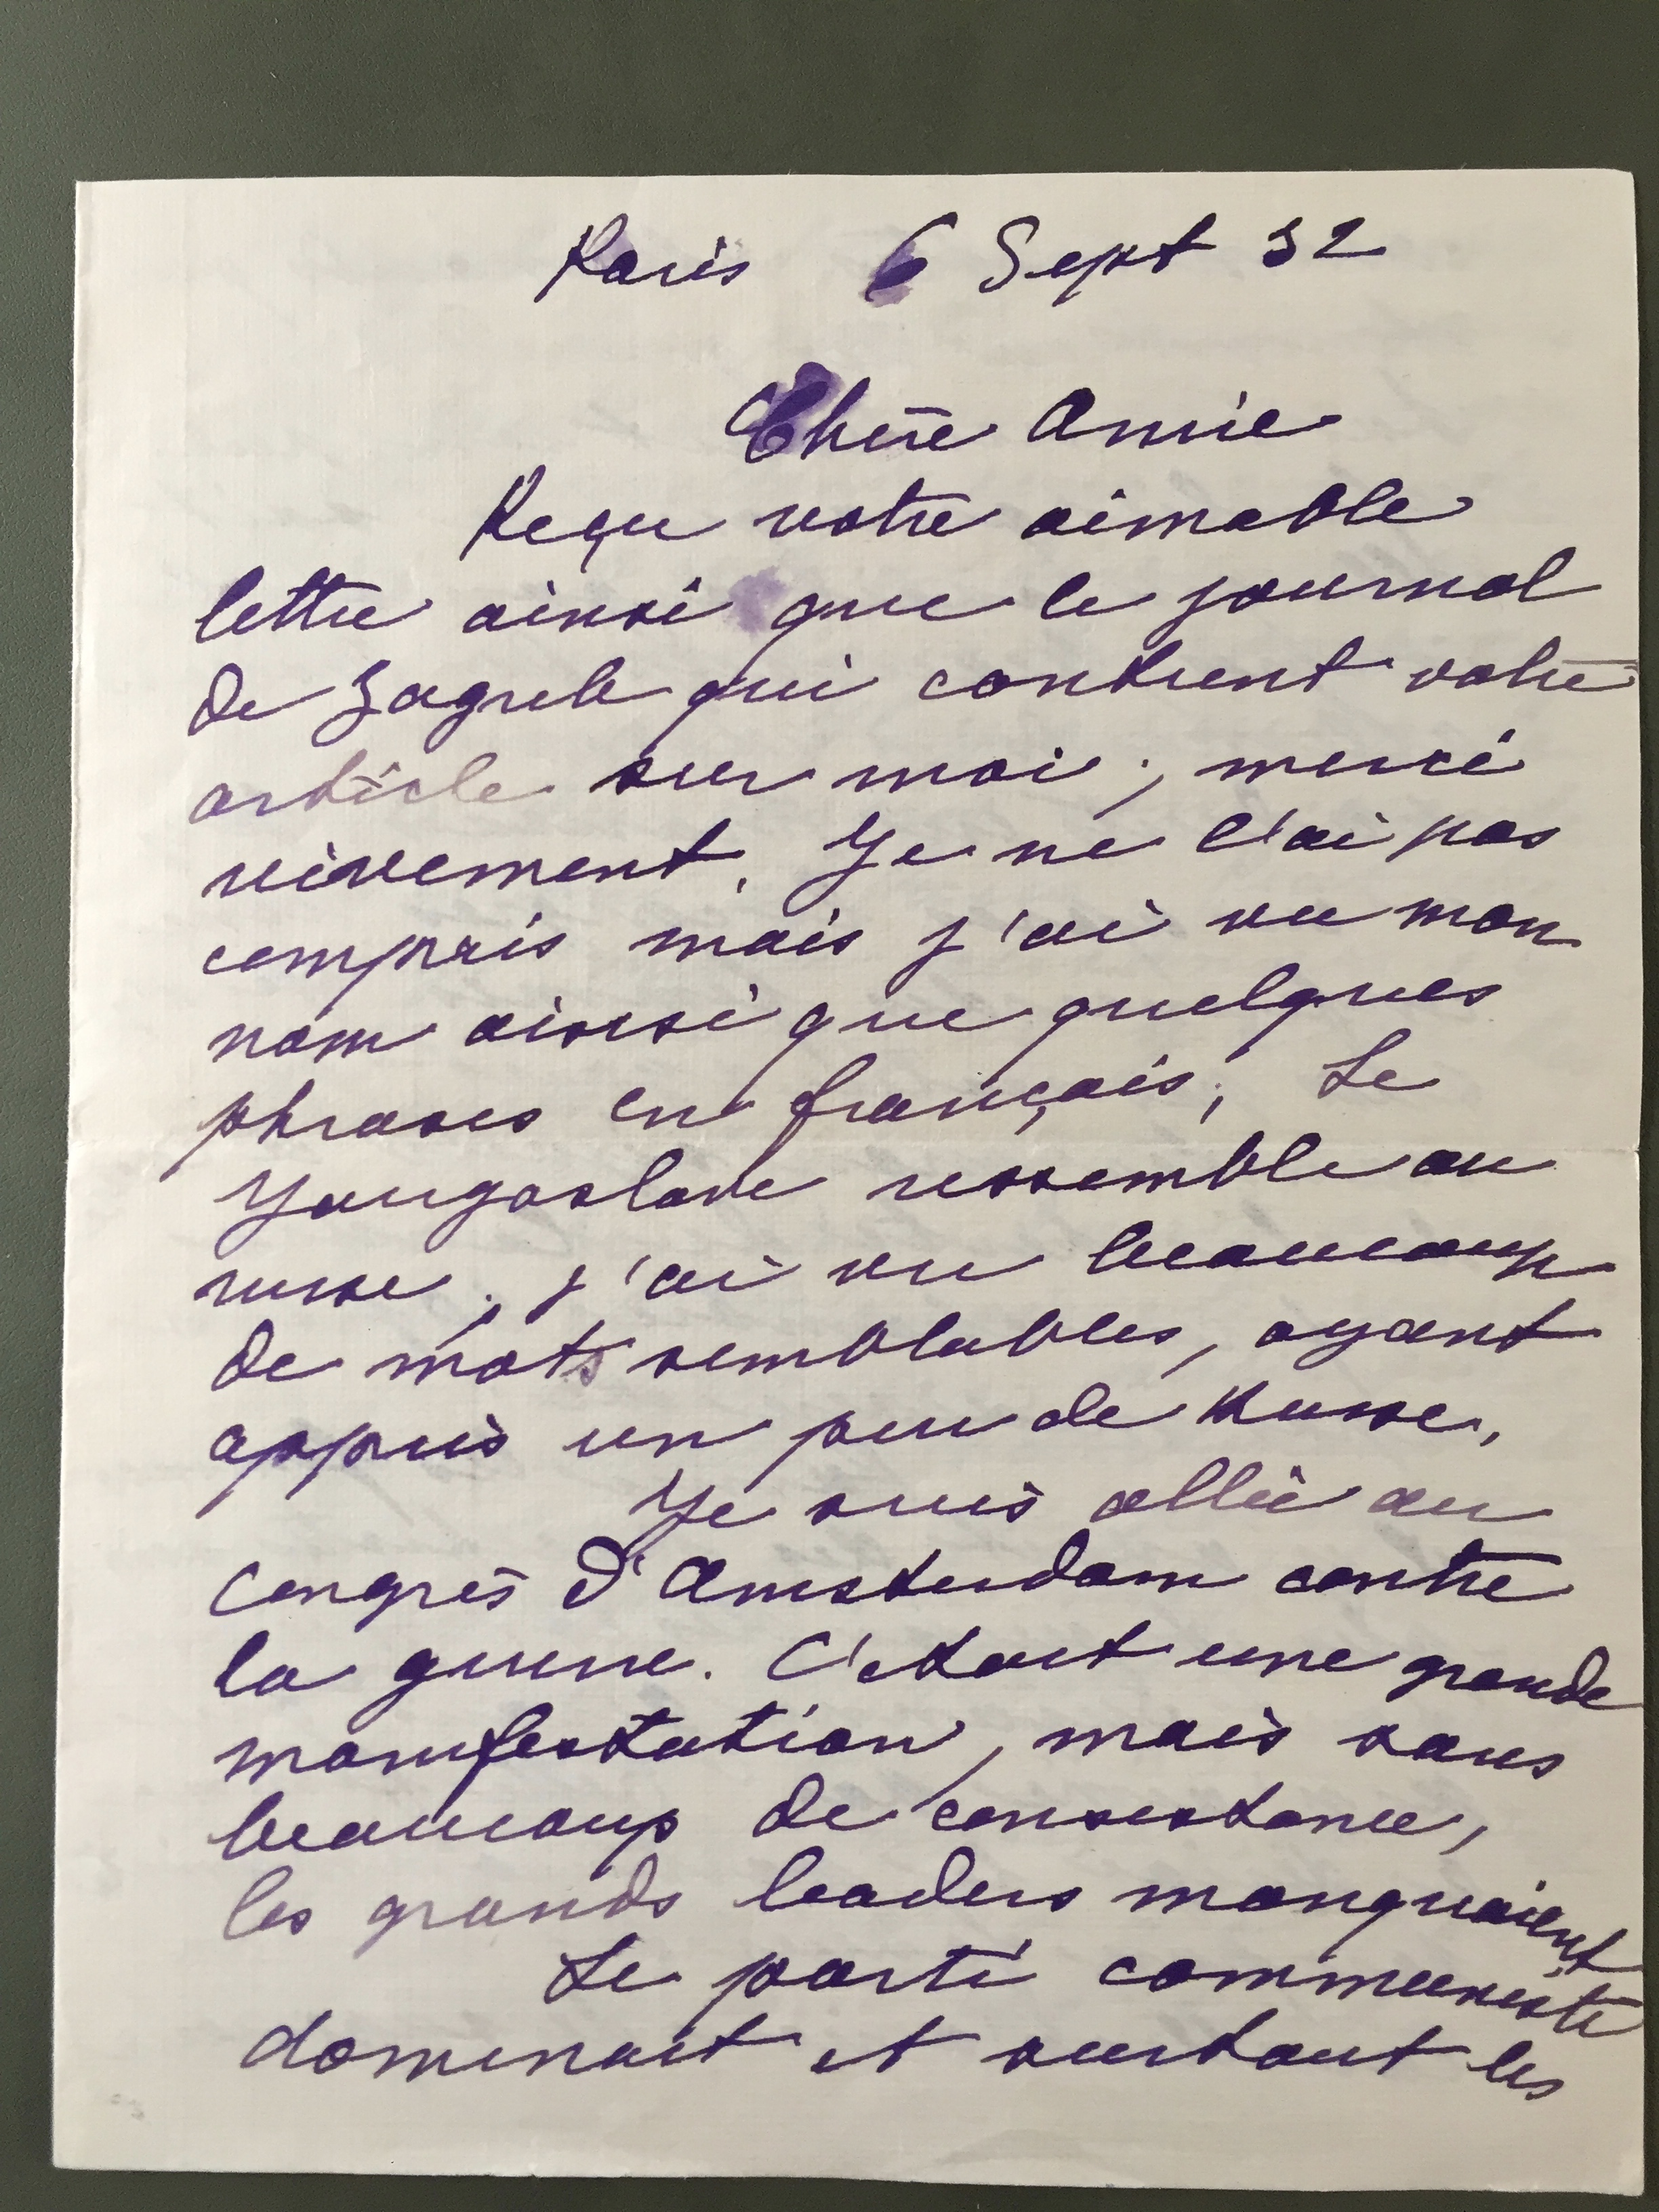 Paris 6 Sept 32
Chère Amie
Reçu votre aimable
lettre ainsi que le journal
de Zagreb qui contient votre
article sur moi ; merci
vivement. Je ne l'ai pas
compris mais j'ai vu mon
nom ainsi que quelques
phrases en français ; Le
Yougoslave ressemble au
russe ; j'ai vu beaucoup
de mots semblables, ayant
appris un peu de Russe.
Je suis allée au
Congrès d'Amsterdam contre
la guerre. C'était une grande
manifestation, mais sans
beaucoup de consistance,
les grands leaders manquaient
Le parti communiste
dominait et surtout les